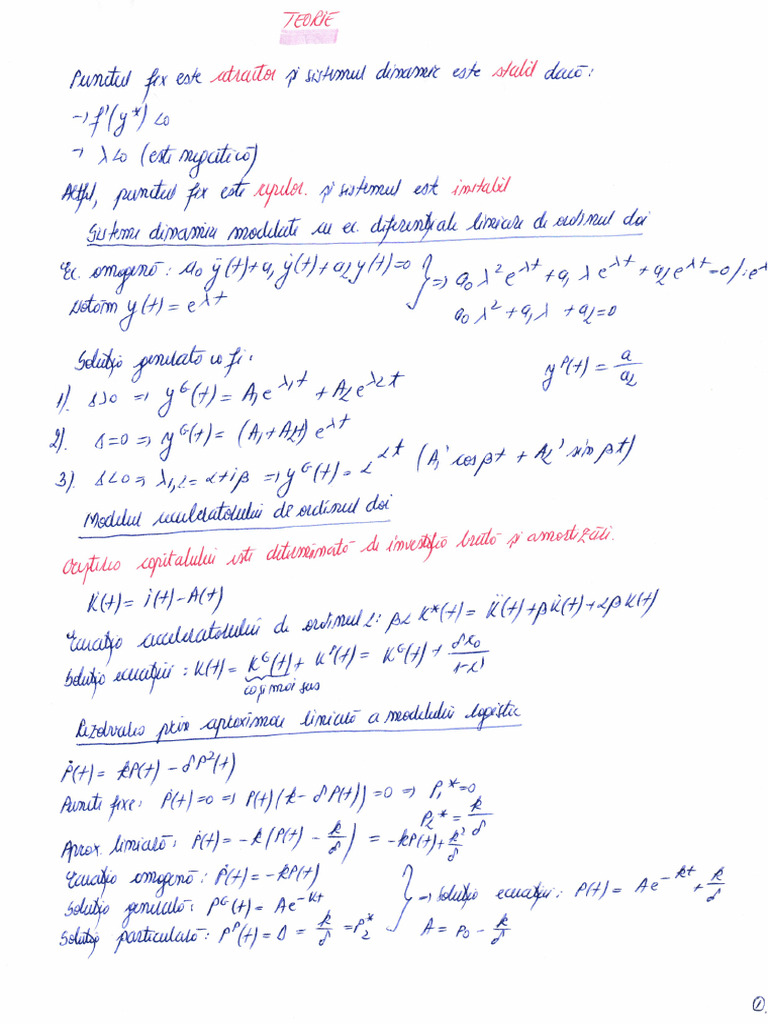 TEORIE
Punctul fix este atractor și sistemul dinamic este stabil dacă:
→ f'(y*) < 0
→ λ<0 (este negativă)
Altfel, punctul fix este repulsor. și sistemul este instabil
Sisteme dinamice modelate cu ec. diferențiale liniare de ordinul doi
Ec. omogenă: a₀ ÿ(t)+a₁ ẏ(t)+a₂ y(t)=0 } => a₀ λ² e^{λt} + a₁ λ e^{λt} + a₂ e^{λt} = 0 /: e^{λ
Notăm y(t) = e^{λt} a₀ λ² + a₁ λ + a₂ = 0
Soluția generală va fi: y^P(t) = a/a₂
1). Δ>0 => y^G(t) = A₁ e^{λ₁t} + A₂ e^{λ₂t}
2). Δ=0 => y^G(t) = (A₁+A₂t) e^{λt}
3). Δ<0 => λ₁,₂ = α+iβ => y^G(t) = e^{αt} (A₁' cos βt + A₂' sin βt)
Modelul acceleratorului de ordinul doi
Creșterea capitalului este determinată de investiția brută și amortizări.
K̇(t) = i(t) - A(t)
Ecuația acceleratorului de ordinul 2: βα K*(t) = K̈(t)+βK̇(t)+αβK(t)
Soluția ecuației: K(t) = K^G(t) + K^P(t) = K^G(t) +
ca și mai sus
Rezolvarea prin aproximare liniară a modelului logistic
Ṗ(t) = kP(t) - δP²(t)
Puncte fixe: Ṗ(t)=0 => P(t)(k - δP(t)) = 0 => P₁* = 0
P₂* = k/δ
Aprox. liniară: Ṗ(t) = -k(P(t) - k/δ) = -kP(t) + k²/δ
Ecuația omogenă: Ṗ(t) = -kP(t)
Soluția generală: P^G(t) = Ae^{-kt} } => Soluția ecuației: P(t) = Ae^{-kt} + k/δ
Soluția particulară: P^P(t) = Δ = k/δ = P₂* A = P₀ - k/δ
1